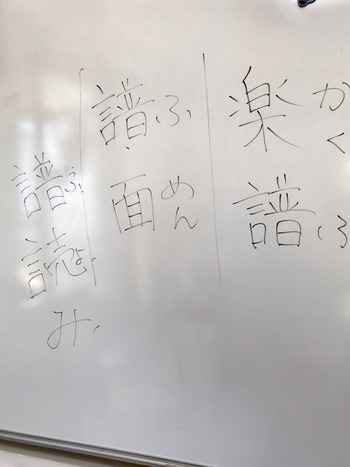 楽譜
がくふ
譜面
ふめん
譜読み
ふよ